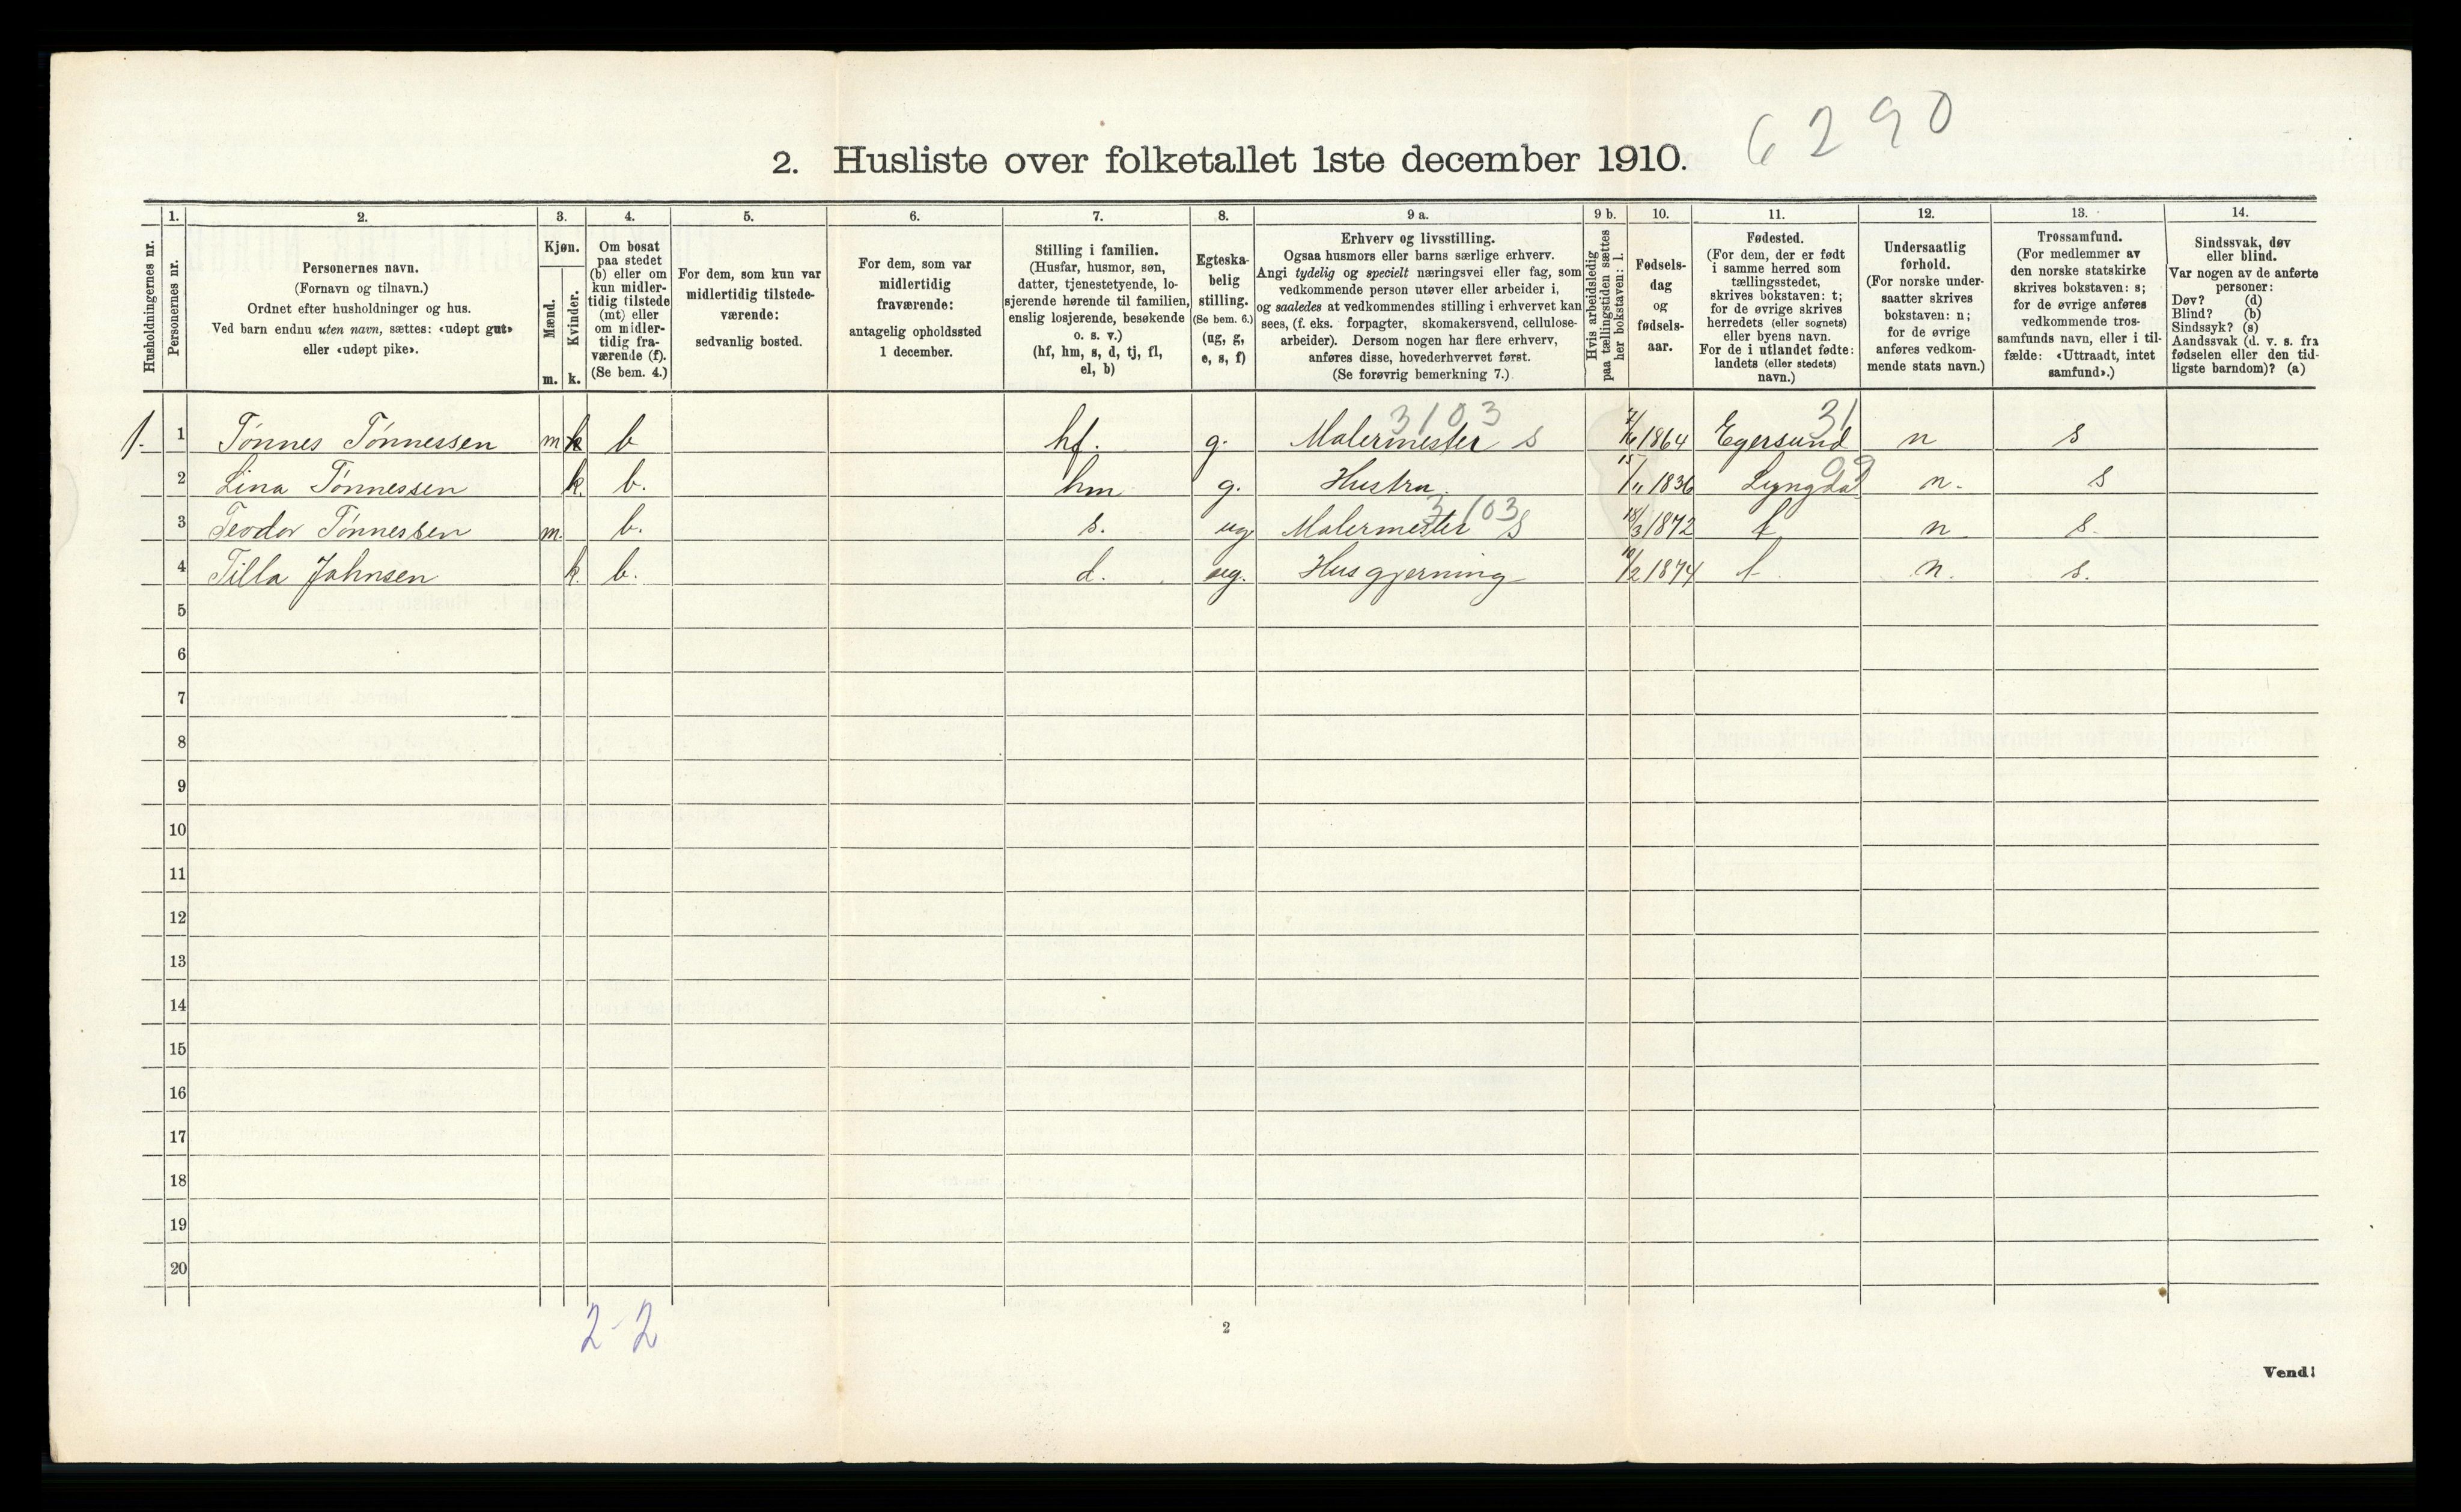 6290
2. Husliste over folketallet 1ste december 1910.
Husholdningernes nr.
1. Personernes nr.
2. Personernes navn.
(Fornavn og tilnavn.)
Ordnet efter husholdninger og hus.
Ved barn endnu uten navn, sættes: «udøpt gut»
eller «udøpt pike».
3. Kjøn.
Mænd. m.
Kvinder. k.
4. Om bosat
paa stedet
(b) eller om
kun midler-
tidig tilstede
(mt) eller
om midler-
tidig fra-
værende (f).
(Se bem. 4.)
5. For dem, som kun var
midlertidig tilstede-
værende:
sedvanlig bosted.
6. For dem, som var
midlertidig
fraværende:
antagelig opholdssted
1 december.
7. Stilling i familien.
(Husfar, husmor, søn,
datter, tjenestetyende, lo-
sjerende hørende til familien,
enslig losjerende, besøkende
o. s. v.)
(hf, hm, s, d, tj, fl,
el, b)
8. Egteska-
belig
stilling.
(Se bem. 6.)
(ug, g,
e, s, f)
9 a. Erhverv og livsstilling.
Ogsaa husmors eller barns særlige erhverv.
Angi tydelig og specielt næringsvei eller fag, som
vedkommende person utøver eller arbeider i,
og saaledes at vedkommendes stilling i erhvervet kan
sees, (f. eks. forpagter, skomakersvend, cellulose-
arbeider). Dersom nogen har flere erhverv,
anføres disse, hovederhvervet først.
(Se forøvrig bemerkning 7.)
9 b. Hvis arbeidsledig
paa tællingstiden sættes
her bokstaven: l.
10. Fødsels-
dag
og
fødsels-
aar.
11. Fødested.
(For dem, der er født
i samme herred som
tællingsstedet,
skrives bokstaven: t;
for de øvrige skrives
herredets (eller sognets)
eller byens navn.
For de i utlandet fødte:
landets (eller stedets)
navn.)
12. Undersaatlig
forhold.
(For norske under-
saatter skrives
bokstaven: n;
for de øvrige
anføres vedkom-
mende stats navn.)
13. Trossamfund.
(For medlemmer av
den norske statskirke
skrives bokstaven: s;
for de øvrige anføres
vedkommende tros-
samfunds navn, eller i til-
fælde: «Uttraadt, intet
samfund».)
14. Sindssvak, døv
eller blind.
Var nogen av de anførte
personer:
Døv? (d)
Blind? (b)
Sindssyk? (s)
Aandssvak (d. v. s. fra
fødselen eller den tid-
ligste barndom)? (a)
3103 31
1. 1 Tønnes Tønnessen m k b hf. g. Malermester s 1864 Egersund n s
09
2 Lina Tønnessen k. b. hm g. Hustru 15/11 1836 Lyngdal n. s
3103
3 Teodor Tønnessen m. b. s. ug Malermester S 18/3 1872 t n s.
4 Tilla Jahnsen k. b. d. ug. Husgjerning 10/2 1874 t n. s.
5
6
7
8
9
10
11
12
13
14
15
16
17
18
19
20
2-2
2
Vend!